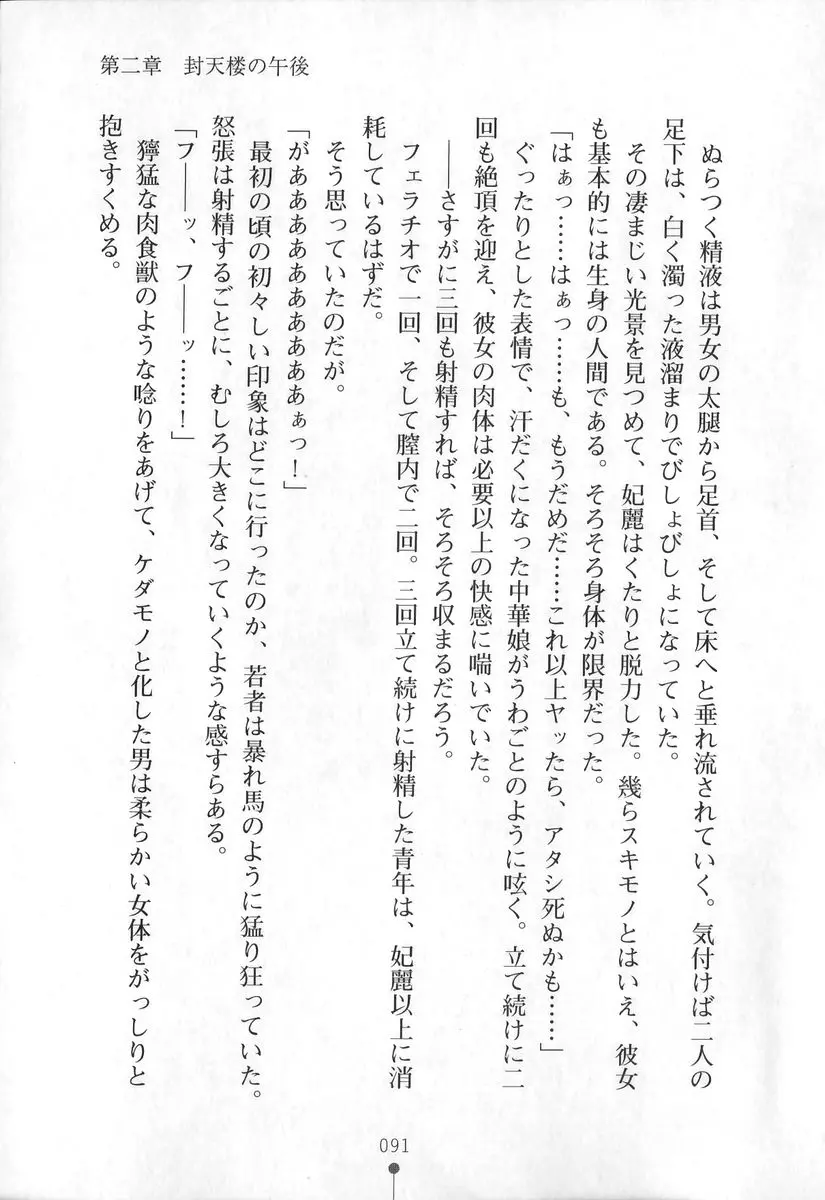 第二章　封天楼の午後
ぬらつく精液は男女の太腿から足首、そして床へと垂れ流されていく。気付けば二人の
足下は、白く濁った液溜まりでびしょびしょになっていた。
その凄まじい光景を見つめて、妃麗はくたりと脱力した。幾らスキモノとはいえ、彼女
も基本的には生身の人間である。そろそろ身体が限界だった。
「はぁっ……はぁっ……も、もうだめだ……これ以上ヤッたら、アタシ死ぬかも……」
ぐったりとした表情で、汗だくになった中華娘がうわごとのように呟く。立て続けに二
回も絶頂を迎え、彼女の肉体は必要以上の快感に喘いでいた。
――さすがに三回も射精すれば、そろそろ収まるだろう。
フェラチオで一回、そして膣内で二回。三回立て続けに射精した青年は、妃麗以上に消
耗しているはずだ。
そう思っていたのだが。
「がああああああああああぁっ！」
最初の頃の初々しい印象はどこに行ったのか、若者は暴れ馬のように猛り狂っていた。
怒張は射精するごとに、むしろ大きくなっていくような感すらある。
「フ――ッ、フ――ッ……！」
獰猛な肉食獣のような唸りをあげて、ケダモノと化した男は柔らかい女体をがっしりと
抱きすくめる。
091